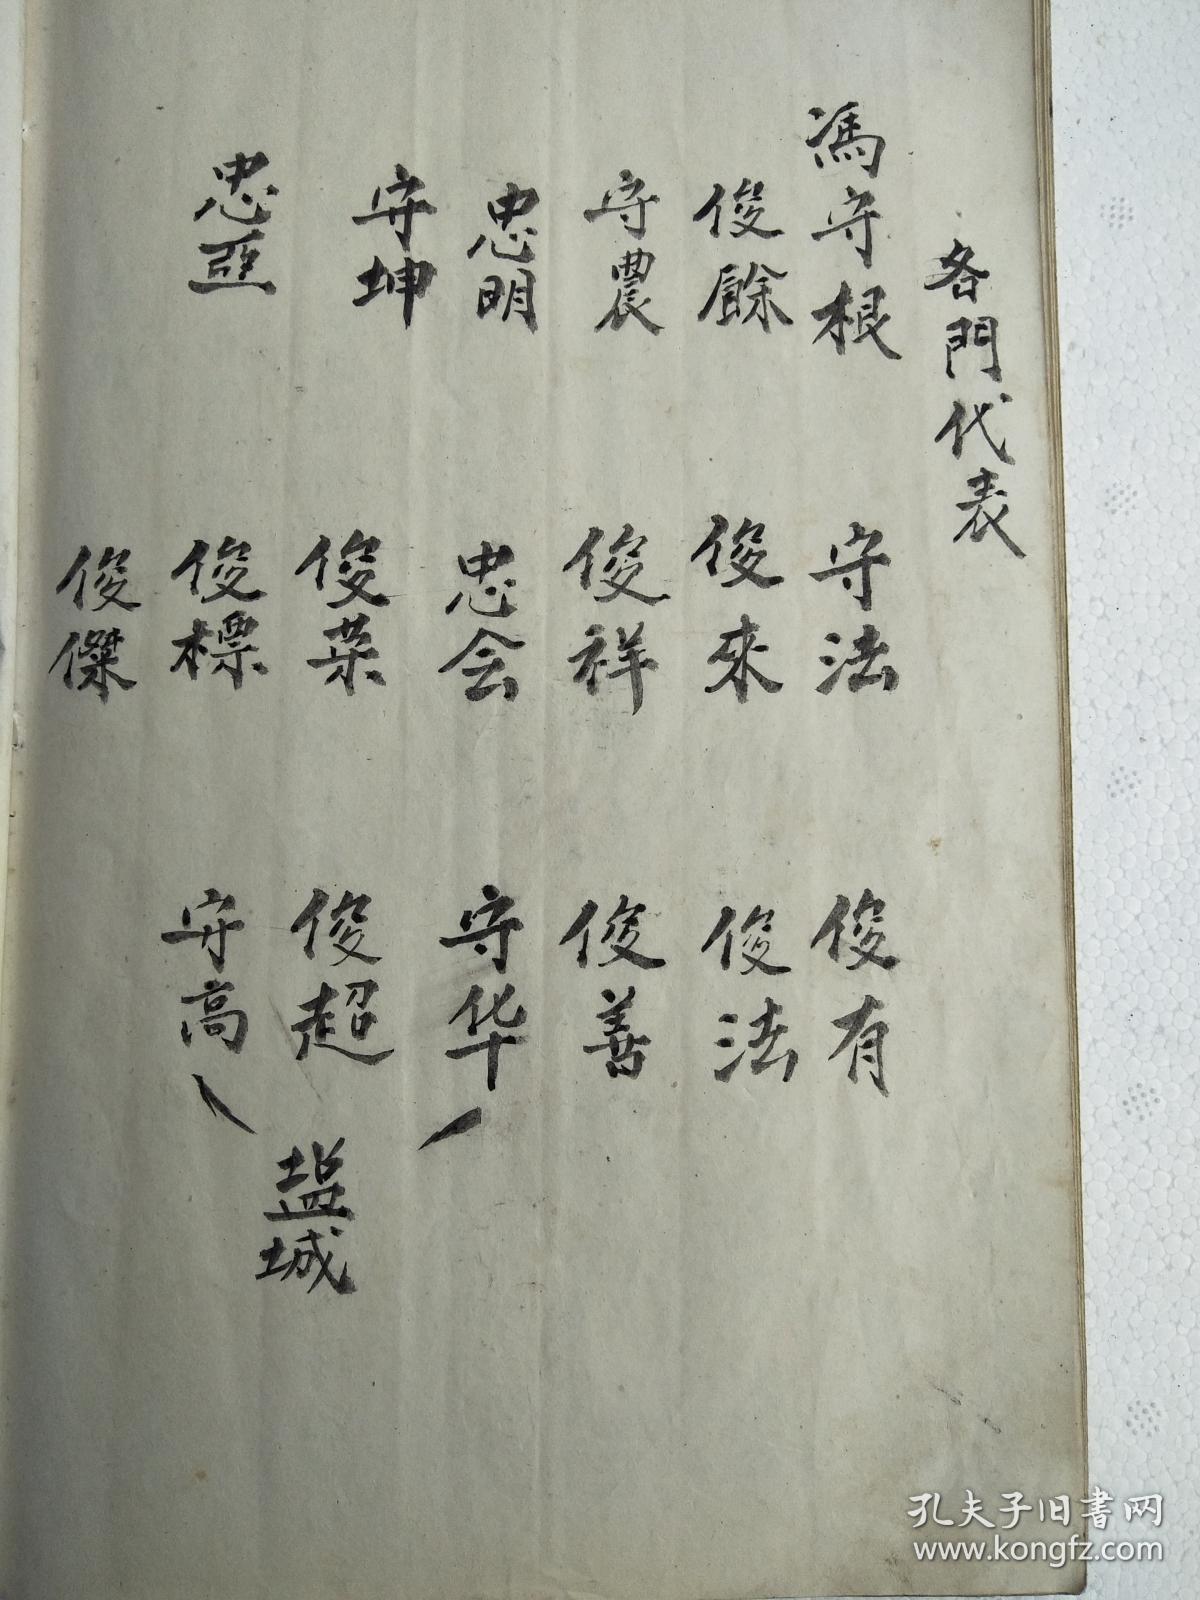 各門代表
馮守根
守法
俊有
俊餘
俊來
俊法
守農
俊祥
俊善
忠明
忠会
守华
守坤
俊菜
俊超
忠亞
俊標
守高
俊傑
盐城
孔夫子旧书网
www.kongfz.com